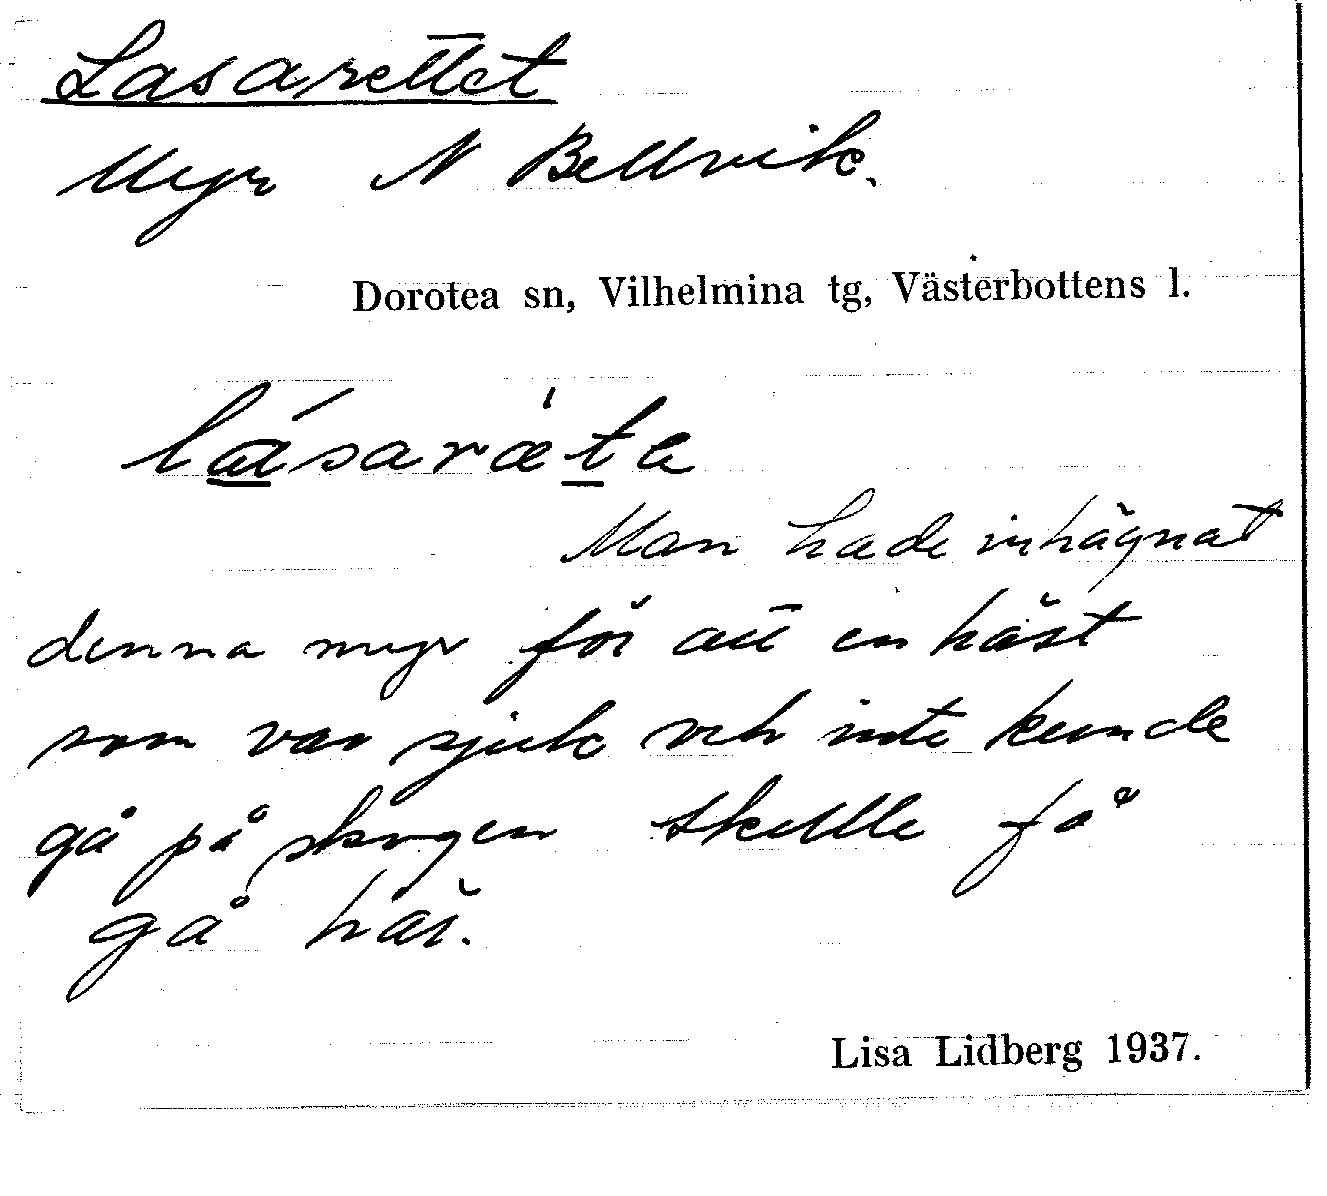 Lasarettet
Myr N Bellvik.
Dorotea sn, Vilhelmina tg, Västerbottens l.
lásaræ̀te
Man hade inhägnat
denna myr för att en häst
som var sjuk och inte kunde
gå på skogen skulle få
gå här.
Lisa Lidberg 1937.